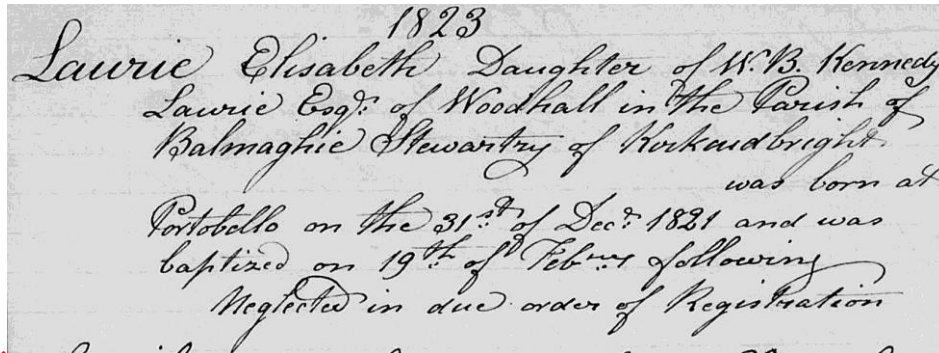 1823
Laurie Elisabeth Daughter of W. B. Kennedy
Laurie Esqr. of Woodhall in the Parish of
Balmaghie Stewartry of Kirkcudbright
was born at
Portobello on the 31st of Decr. 1821 and was
baptized on 19th of Febry following
Neglected in due order of Registration